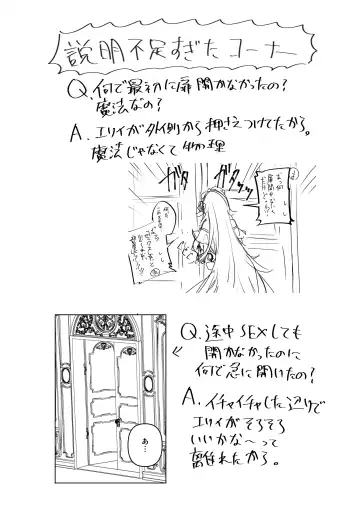 説明不足すぎたコーナー
Q.何で最初に扉開かなかったの?
魔法なの?
A.エリィが外側から押さえつけてたから。
魔法じゃなくて物理
ガタ
ガタッ
Q.途中SEXしても
開かなかったのに
何で急に開いたの?
A.イチャイチャした辺りで
エリィがそろそろ
いいかな~って
離れたから。
あ…